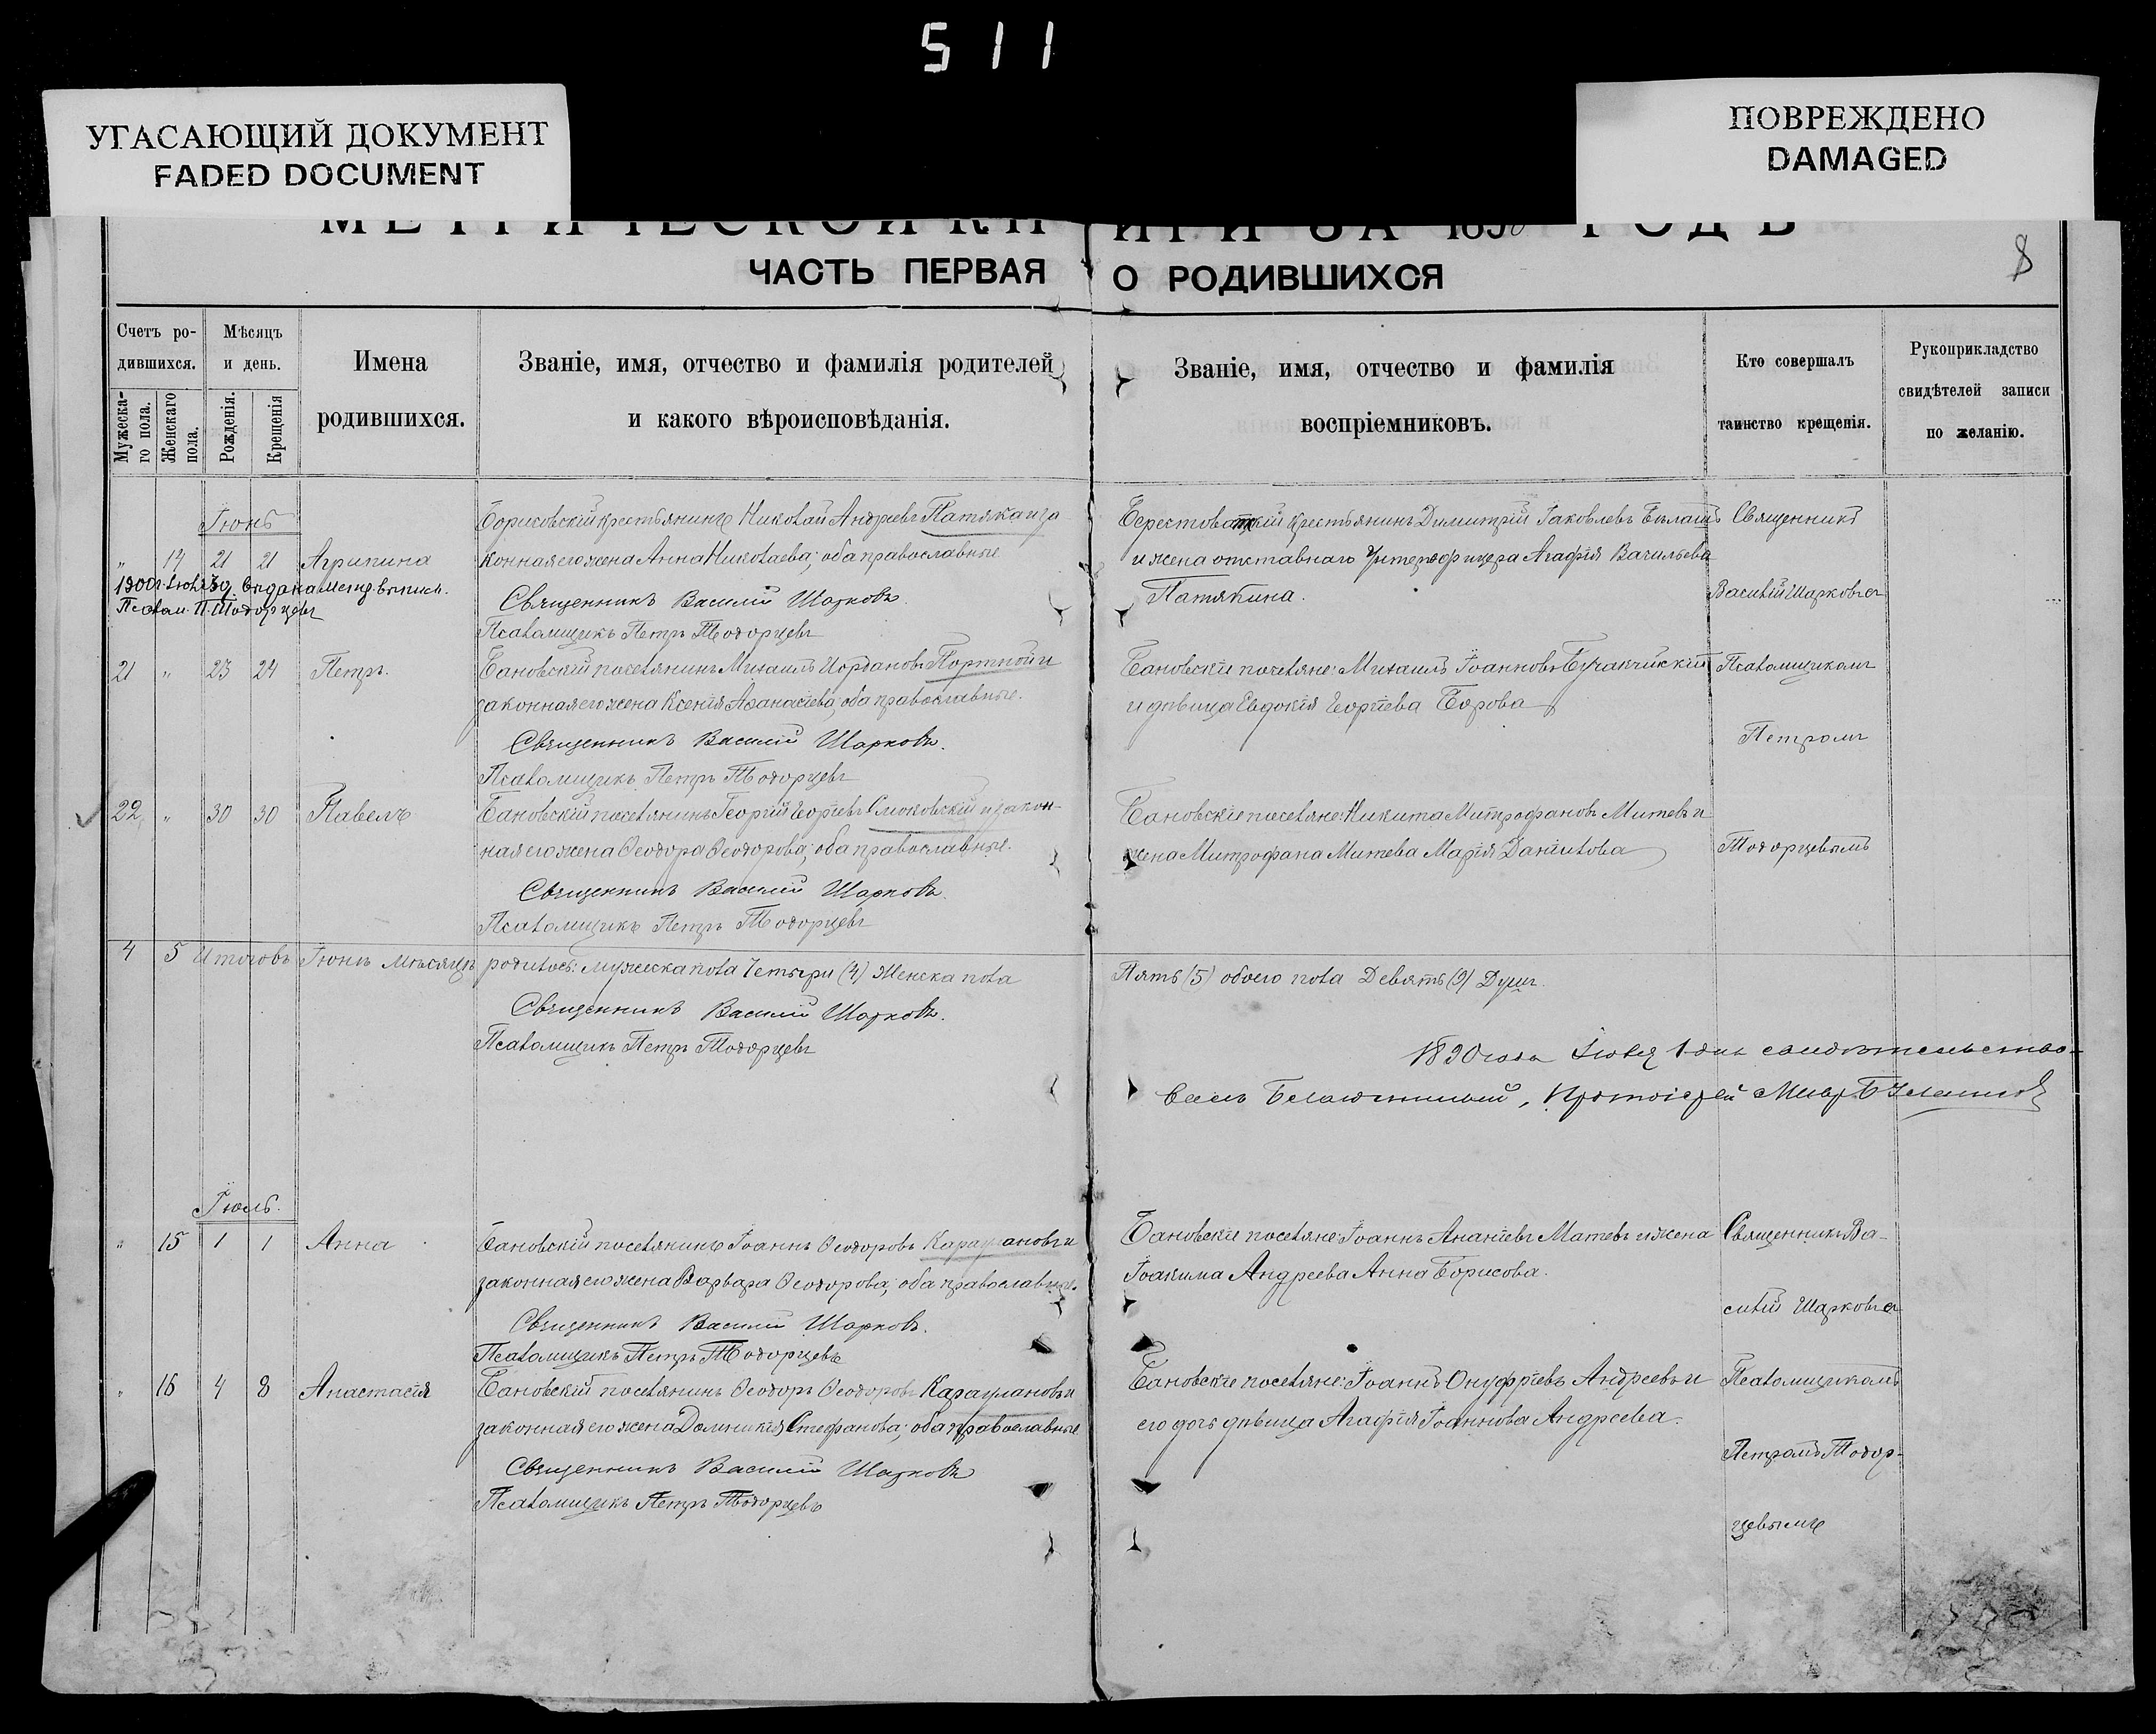 511
УГАСАЮЩИЙ ДОКУМЕНТ
FADED DOCUMENT
ПОВРЕЖДЕНО
DAMAGED
МЕТРИЧЕСКОЙ КНИГИ ЗА 1890 ГОДЪ
8
ЧАСТЬ ПЕРВАЯ О РОДИВШИХСЯ
Счетъ ро-
дившихся.
Мужеска-
го пола.
Женскаго
пола.
Мѣсяцъ
и день.
Рожденія.
Крещенія
Имена
родившихся.
Званіе, имя, отчество и фамилія родителей
и какого вѣроисповѣданія.
Званіе, имя, отчество и фамилія
воспріемниковъ.
Кто совершалъ
таинство крещенія.
Рукоприкладство
свидѣтелей записи
по желанію.
Іюнь
" 14 21 21 Агрипина
Борисовскій крестьянинъ Николай Андреевъ Патяка и за-
конная его жена Анна Николаева; оба православные
Священникъ Василій Шарковъ.
Псаломщикъ Петръ Тодорцевъ
Берестовскій крестьянинъ Димитрій Іаковлевъ Білашъ
и жена отставнаго Унтерофицера Агафія Васильева
Патякина.
Священникъ
Василій Шарковъ съ
выдана метр. выпись.
Псалом. П. Тодорцевъ
21 " 23 24 Петръ.
Бановскій поселянинъ Михаилъ Іордановъ Портной и
законная его жена Ксенія Аѳанасіева; оба православные.
Священникъ Василій Шарковъ.
Псаломщикъ Петръ Тодорцевъ
Бановскіе поселяне: Михаилъ Іоанновъ Бужакчійскій
и дѣвица Евдокія Георгіева Борова
Псаломщикомъ
Петромъ
22 " 30 30 Павелъ
Бановскій поселянинъ Георгій Георгіевъ Смоковскій и закон-
ная его жена Ѳеодора Ѳеодорова; оба православные.
Священникъ Василій Шарковъ.
Псаломщикъ Петръ Тодорцевъ
Бановскіе поселяне: Никита Митрофановъ Митевъ и
жена Митрофана Митева Марія Даніилова
Тодорцевымъ
4 5 Итого въ Іюнѣ мѣсяцѣ родилось: мужеска пола Четыри (4) Женска пола
Пять (5) обоего пола Девять (9) Душъ.
Священникъ Василій Шарковъ.
Псаломщикъ Петръ Тодорцевъ
1890 года Іюля 1 дня свидѣтельство-
валъ Благочинный, Протоіерей
Іюль.
" 15 1 1 Анна
Бановскій поселянинъ Іоаннъ Ѳеодоровъ Карауловъ и
законная его жена Варвара Ѳеодорова; оба православные.
Священникъ Василій Шарковъ.
Псаломщикъ Петръ Тодорцевъ
Бановскіе поселяне: Іоаннъ Ананіевъ Матевъ и жена
Іоакима Андреева Анна Борисова.
Священникъ Ва-
силій Шарковъ съ
" 16 4 8 Анастасія
Бановскій поселянинъ Ѳеодоръ Ѳеодоровъ Карауланов и
законная его жена Домникія Стефанова; оба православные
Священникъ Василій Шарковъ
Псаломщикъ Петръ Тодорцевъ
Бановскіе поселяне: Іоаннъ Онуфріевъ Андреевъ и
его дочь дѣвица Агафія Іоаннова Андреева.
Псаломщикомъ
Петромъ Тодор-
цевымъ